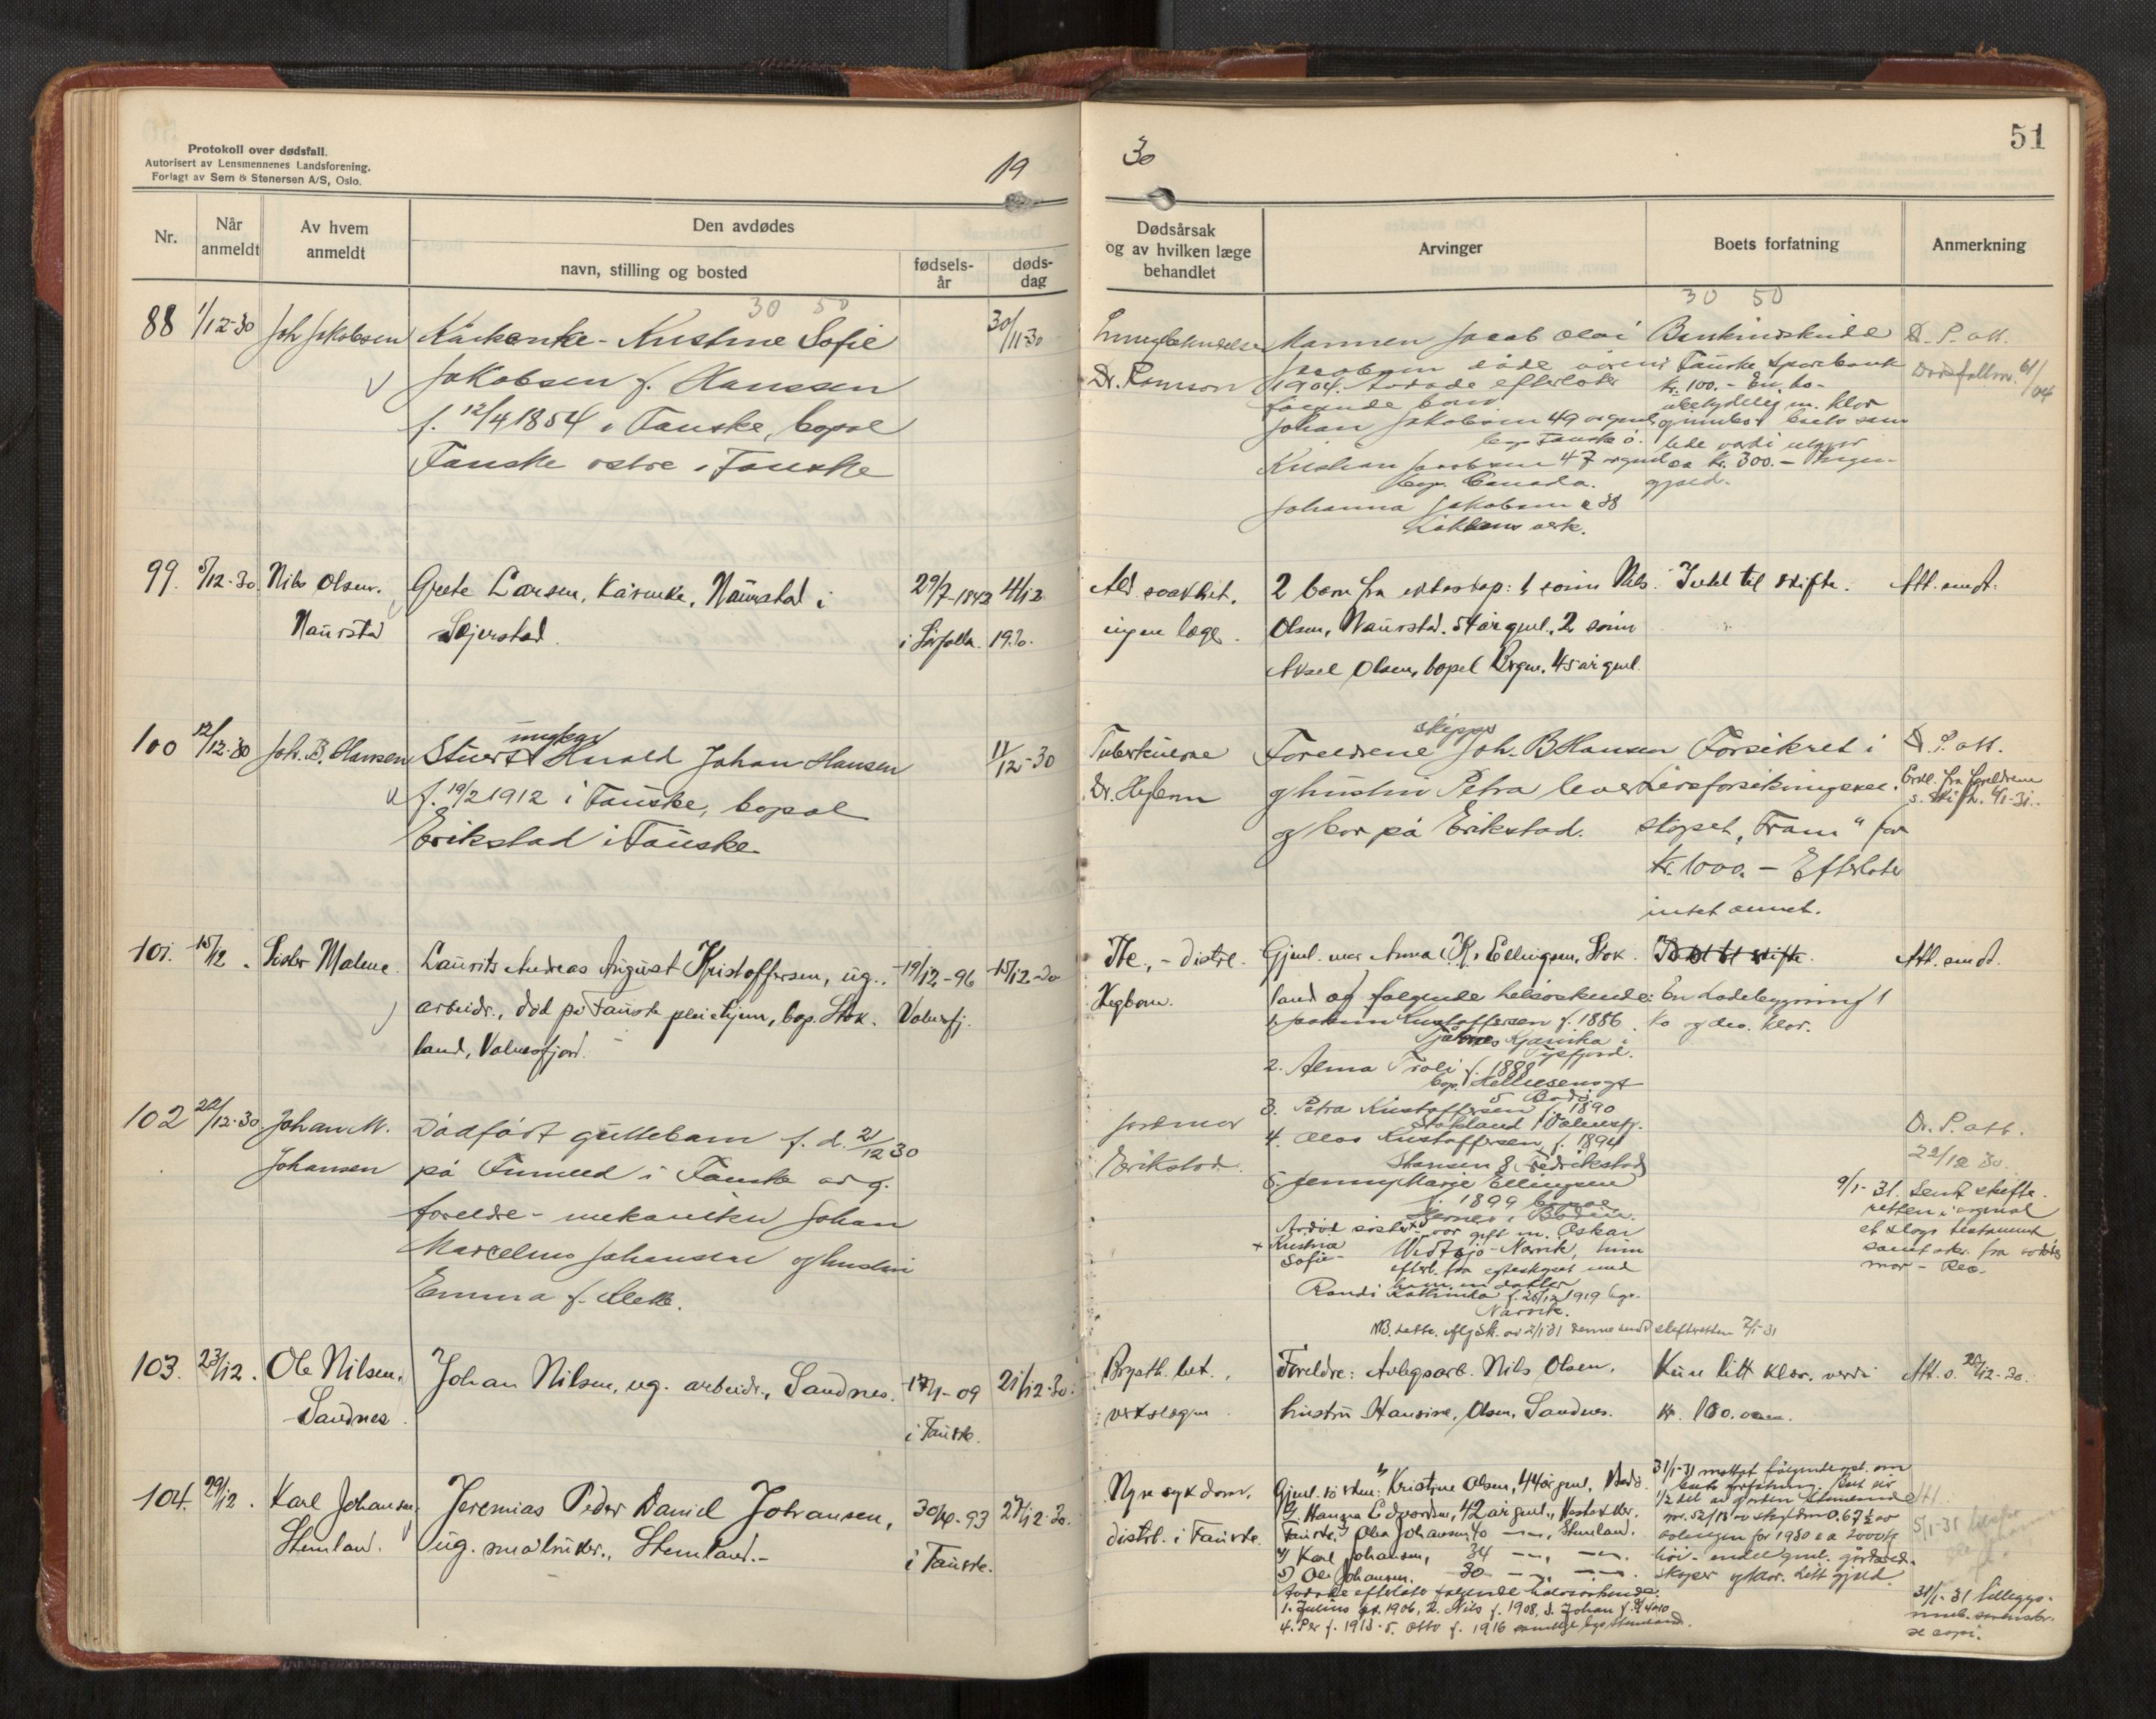 Protokoll over dødsfall.
Autorisert av Lensmennenes Landsforening.
Forlagt av Sem & Stenersen A/S, Oslo.
19
30
51
Nr.
Når anmeldt
Av hvem anmeldt
Den avdødes
navn, stilling og bosted
fødsels-
år
døds-
dag
Dødsårsak
og av hvilken læge
behandlet
Arvinger
Boets forfatning
Anmerkning
30 50
30 50
88 1/12-30 Joh Jakobsen
Kårkenke - Kristine Sofie
Jakobsen f. Hanssen
f. 12/4 1854 i Fauske, bopæl
Fauske østre i Fauske
30/11-30
Lungebetendelse
Mannen Jacob Olai
Jacobsen døde våren
1904. Avdøde efterlater
følgende barn
Johan Jakobsen 49 år gml
bop Fauske ø.
47 år gml
bop. Canada.
Johanna Jakobsen 38
Løkkens verk.
Bankinskudd
i Fauske Sparebank
kr. 100.- En ko-
ubetydelig m. klær
kr. 300.- Ingen
gjæld.
D. P. att.
Dødsfallnr. 61/04
99. 5/12-30. Nils Olsen.
Naurstad
Grete Larsen, Kårenke, Naurstad i
Skjerstad.
29/7-1842
i Sørfolla.
4/12
1930.
Ald. svakhet.
ingen læge.
2 barn fra ekteskap: 1 sønn Nils
Olsen, Naurstad. 54 år gml., 2 sønn
Aksel Olsen, bopel Bergen. 45 år gml.
Intet til skifte.
Att. sendt.
100 12/12-30 Joh. B. Hansen
ungkar
Stuert Harald Johan Hansen
f. 19/2 1912 i Fauske, bopæl
Erikstad i Fauske
11/12-30
Tuberkulose
Dr. Hegbom
skipper
Foreldrene Joh. B Hansen
og hustru Petra lever
og bor på Erikstad.
Forsikret i
Livsforsikringssel.
skapet "Fram" for
kr. 1000.- Efterlater
intet annet.
D. P. att.
Erkl. fra foreldrene
101. 15/12. Søster Malene.
Laurits Andreas August Kristoffersen, ug.
arbeidr., død på Fauske pleiehjem, bop. Stok-
land, Valnesfjord.
19/12-96
Valnesfj.
15/12-30
Tbc., - distrl.
Hegbom.
Gjenl. mor Anna K. Ellingsen, Stok-
land og følgende helsøskende:
1. Joakim Kristoffersen f. 1886
Tysfjord.
2. Alma Troli f. 1888
Bodø
3. Petra Kristoffersen f. 1890
Stokland i Valnesfj.
4. Olav Kristoffersen f. 1894
Hansen 8 Fredrikstad
5. Jenny Marie Ellingsen
f. 1899 bopæl
Avdød søster var gift m. Oskar
+ Kristina
Sofie -
Narvik, hun
efterl. fra egteskapet med
ham en datter
Randi Kathinka f. 26/12 1919 bop.
Narvik.
Intet til skifte.
En ladebygning 1
ko og div. klær.
Att. sendt.
102 22/12-30 Johan M.
Johansen
Dødfødt guttebarn f. d. 21/12 30
på Finneid i Fauske av g.
foreldre - mekaniker Johan
Marcelius Johansen og hustru
Emma f.
Jordmor
Erikstad.
Dr. P. att.
22/12 30.
9/1-31. Sendt skifte-
retten i original
et slags testament
mor - Rec.
103. 23/12. Ole Nilsen,
Sandnes.
Johan Nilsen, ug. arbeidr., Sandnes.
17/1-09
i Fauske.
21/12-30.
Brysth. bet.,
verkslægen
Foreldre: Anlegsarb. Nils Olsen,
hustru Hansine Olsen, Sandnes.
Kun litt klær. verdi
kr. 100.
Att. s. 26/12-30.
104. 29/12. Karl Johansen,
Stemland.
Jeremias Peder Daniel Johansen,
ug. småbruker., Stemland.-
30/4-93
i Fauske.
27/12-30.
Nyresykdom.
distrl. i Fauske.
Gjenl. søsken: 1/ Kristine Olsen, 44 år gml, Bodø
2/. Hanna Edvardsen, 42 år gml.,
Fauske. 3/ Olea Johansen 40 —"—, Stemland.
4/ Karl Johansen, 34 —"—, —"—.
5/ Ole Johansen. 30 —"—, —"—.
Avdøde efterlater følgende halvsøskende:
1. Julius f. 1906, 2. Nils f. 1908, 3. Johan f. 1910
4. Per f. 1913. 5. Otto f. 1916 samtlige bop Stemland.
31/1-31 mottat følgende opl. om
boets forfatning: Boet eier
1/2 del av gården Stemland
avlingen for 1930 ca 2000 kg
høi - endel gml. gårdsred-
skaper og klær. Litt gjeld.
31/1-31 tilleggs-
se copi.